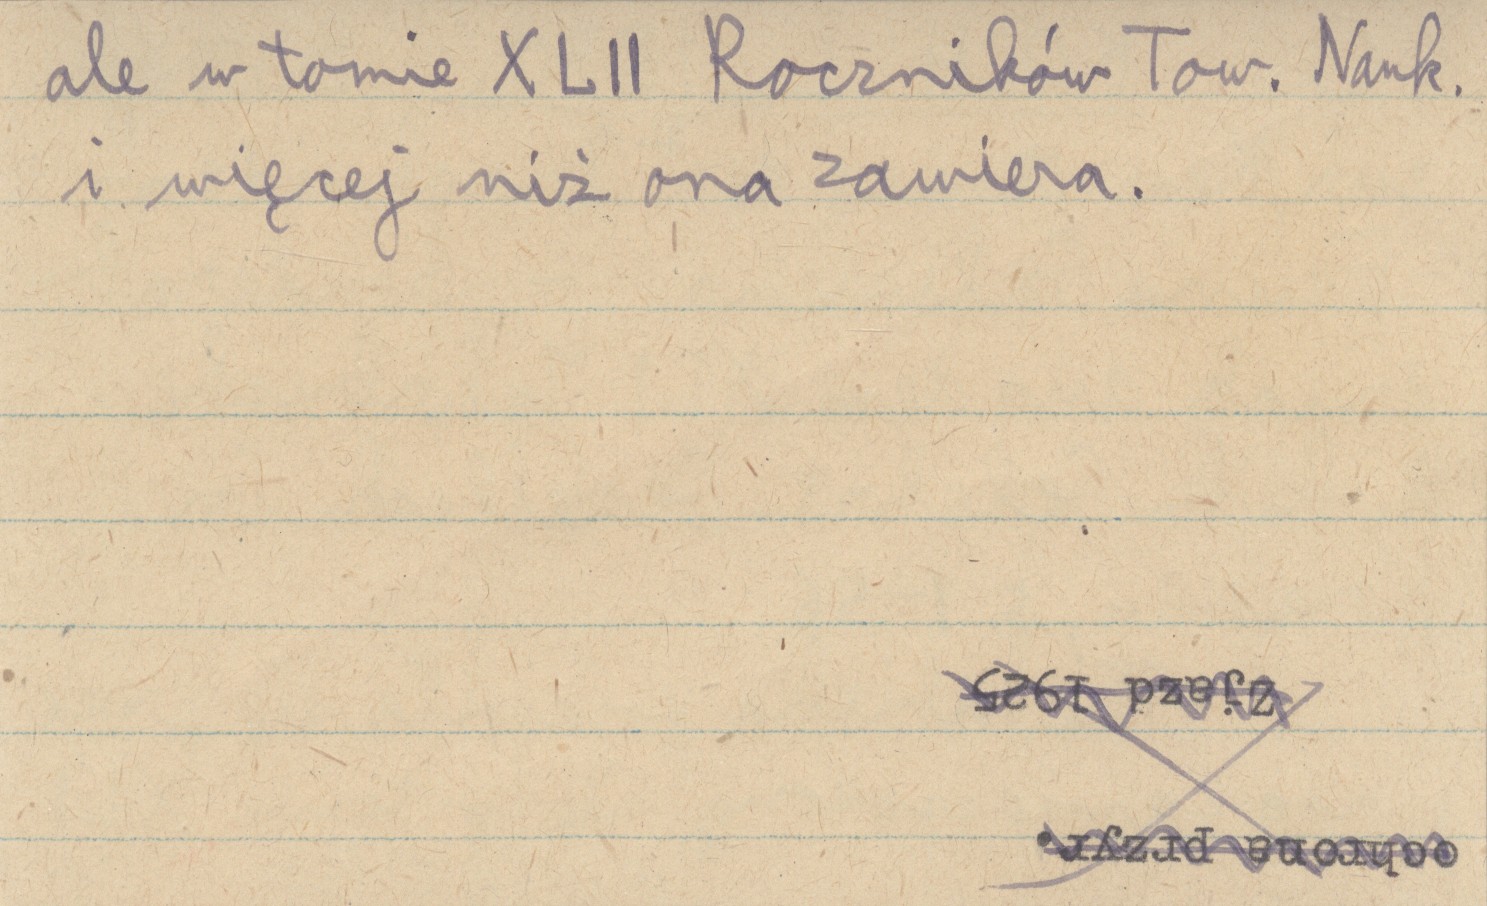 ale w tomie XLII Roczników Tow. Nauk.
i więcej niż ona zawiera.
ochrona przyr.
Zjazd 1925